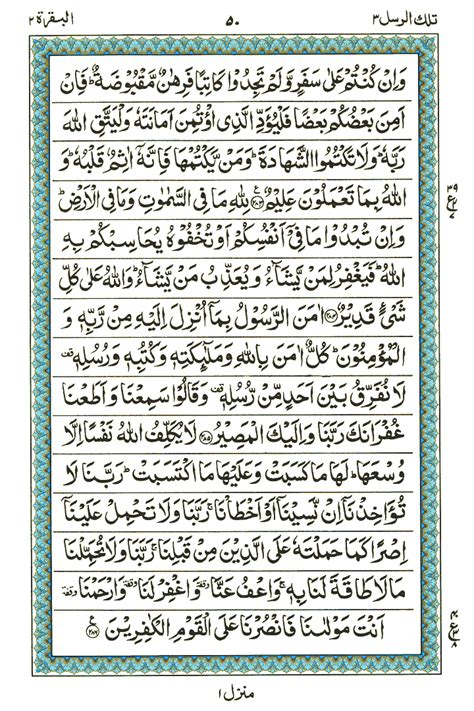 تلك الرسل ٣ ٥٠ البقرة ٢
وَاِنْ كُنْتُمْ عَلٰى سَفَرٍ وَّلَمْ تَجِدُوْا كَاتِبًا فَرِهٰنٌ مَّقْبُوْضَةٌ ؕ فَاِنْ
اَمِنَ بَعْضُكُمْ بَعْضًا فَلْيُؤَدِّ الَّذِى اؤْتُمِنَ اَمَانَتَهٗ وَلْيَتَّقِ اللّٰهَ
رَبَّهٗ ؕ وَلَا تَكْتُمُوا الشَّهَادَةَ ؕ وَمَنْ يَّكْتُمْهَا فَاِنَّهٗۤ اٰثِمٌ قَلْبُهٗ ؕ وَ
اللّٰهُ بِمَا تَعْمَلُوْنَ عَلِيْمٌ ﴿٢٨٣﴾ لِلّٰهِ مَا فِى السَّمٰوٰتِ وَمَا فِى الْاَرْضِ ؕ
وَاِنْ تُبْدُوْا مَا فِىْۤ اَنْفُسِكُمْ اَوْ تُخْفُوْهُ يُحَاسِبْكُمْ بِهِ
اللّٰهُ ؕ فَيَغْفِرُ لِمَنْ يَّشَآءُ وَيُعَذِّبُ مَنْ يَّشَآءُ ؕ وَاللّٰهُ عَلٰى كُلِّ
شَىْءٍ قَدِيْرٌ ﴿٢٨٤﴾ اٰمَنَ الرَّسُوْلُ بِمَاۤ اُنْزِلَ اِلَيْهِ مِنْ رَّبِّهٖ وَ
الْمُؤْمِنُوْنَ ؕ كُلٌّ اٰمَنَ بِاللّٰهِ وَمَلٰٓئِكَتِهٖ وَكُتُبِهٖ وَرُسُلِهٖ قف
لَا نُفَرِّقُ بَيْنَ اَحَدٍ مِّنْ رُّسُلِهٖ قف وَقَالُوْا سَمِعْنَا وَاَطَعْنَا
غُفْرَانَكَ رَبَّنَا وَاِلَيْكَ الْمَصِيْرُ ﴿٢٨٥﴾ لَا يُكَلِّفُ اللّٰهُ نَفْسًا اِلَّا
وُسْعَهَا ؕ لَهَا مَا كَسَبَتْ وَعَلَيْهَا مَا اكْتَسَبَتْ ؕ رَبَّنَا لَا
تُؤَاخِذْنَاۤ اِنْ نَّسِيْنَاۤ اَوْ اَخْطَاْنَا ۚ رَبَّنَا وَلَا تَحْمِلْ عَلَيْنَاۤ
اِصْرًا كَمَا حَمَلْتَهٗ عَلَى الَّذِيْنَ مِنْ قَبْلِنَا ۚ رَبَّنَا وَلَا تُحَمِّلْنَا
مَا لَا طَاقَةَ لَنَا بِهٖ ۚ وَاعْفُ عَنَّا وقفة وَاغْفِرْ لَنَا وقفة وَارْحَمْنَا وقفة
اَنْتَ مَوْلٰىنَا فَانْصُرْنَا عَلَى الْقَوْمِ الْكٰفِرِيْنَ ﴿٢٨٦﴾
منزل ١